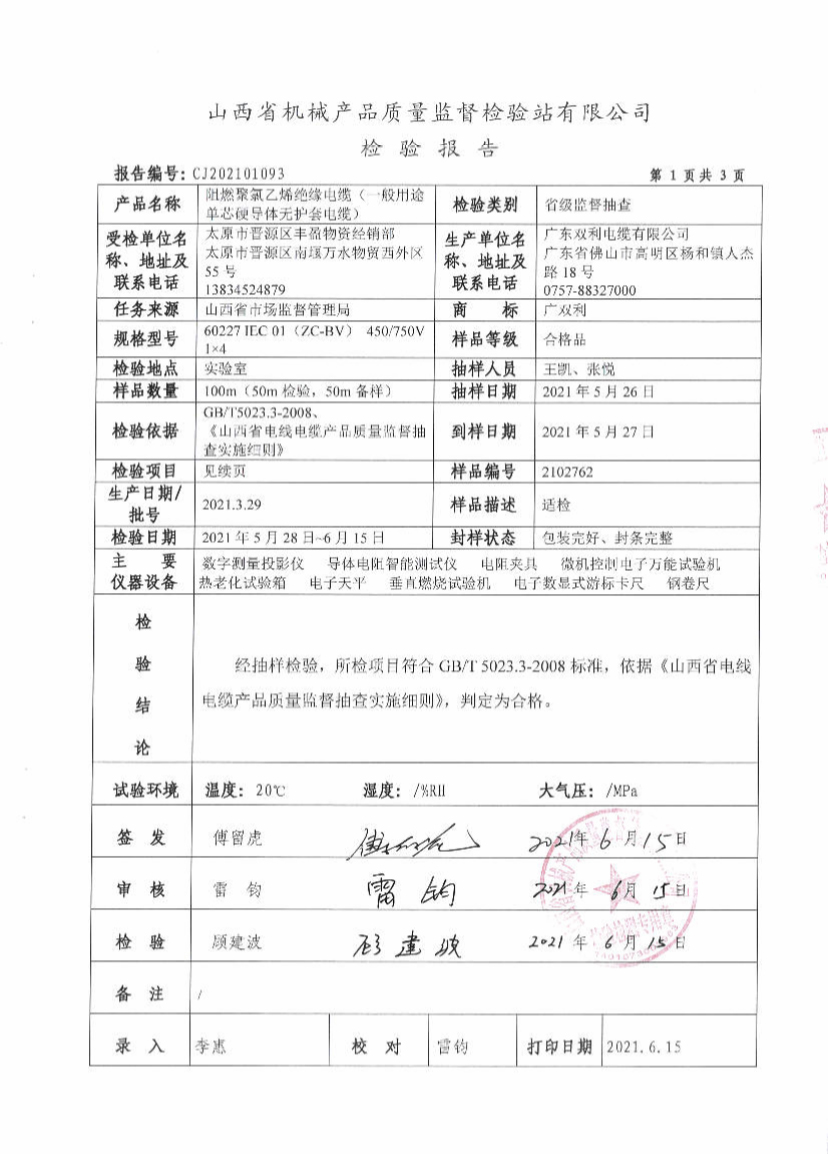 山西省机械产品质量监督检验站有限公司
检 验 报 告
报告编号: CJ202101093 第 1 页共 3 页
产品名称 阻燃聚氯乙烯绝缘电缆(一般用途
单芯硬导体无护套电缆) 检验类别 省级监督抽查
受检单位名
称、地址及
联系电话 太原市晋源区丰盈物资经销部
太原市晋源区南堰万水物贸西外区
55 号
13834524879
生产单位名
称、地址及
联系电话 广东双利电缆有限公司
广东省佛山市高明区杨和镇人杰
路 18 号
0757-88327000
任务来源 山西省市场监督管理局 商 标 广双利
规格型号 60227 IEC 01(ZC-BV) 450/750V
1×4 样品等级 合格品
检验地点 实验室 抽样人员 王凯、张悦
样品数量 100m(50m 检验,50m 备样) 抽样日期 2021 年 5 月 26 日
检验依据 GB/T5023.3-2008、
《山西省电线电缆产品质量监督抽
查实施细则》 到样日期 2021 年 5 月 27 日
检验项目 见续页 样品编号 2102762
生产日期/
批号 2021.3.29 样品描述 适检
检验日期 2021 年 5 月 28 日~6 月 15 日 封样状态 包装完好、封条完整
主 要
仪器设备 数字测量投影仪 导体电阻智能测试仪 电阻夹具 微机控制电子万能试验机
热老化试验箱 电子天平 垂直燃烧试验机 电子数显式游标卡尺 钢卷尺
检
验
结
论
经抽样检验,所检项目符合 GB/T 5023.3-2008 标准,依据《山西省电线
电缆产品质量监督抽查实施细则》,判定为合格。
试验环境 温度: 20℃ 湿度: /%RH 大气压: /MPa
签 发 傅留虎 2021年 6 月 15 日
审 核 雷 钧 雷 钧 2021 年 6月 15 日
检 验 顾建波 顾建波 2021 年 6 月 15 日
备 注 /
录 入 李惠 校 对 雷钧 打印日期 2021.6.15